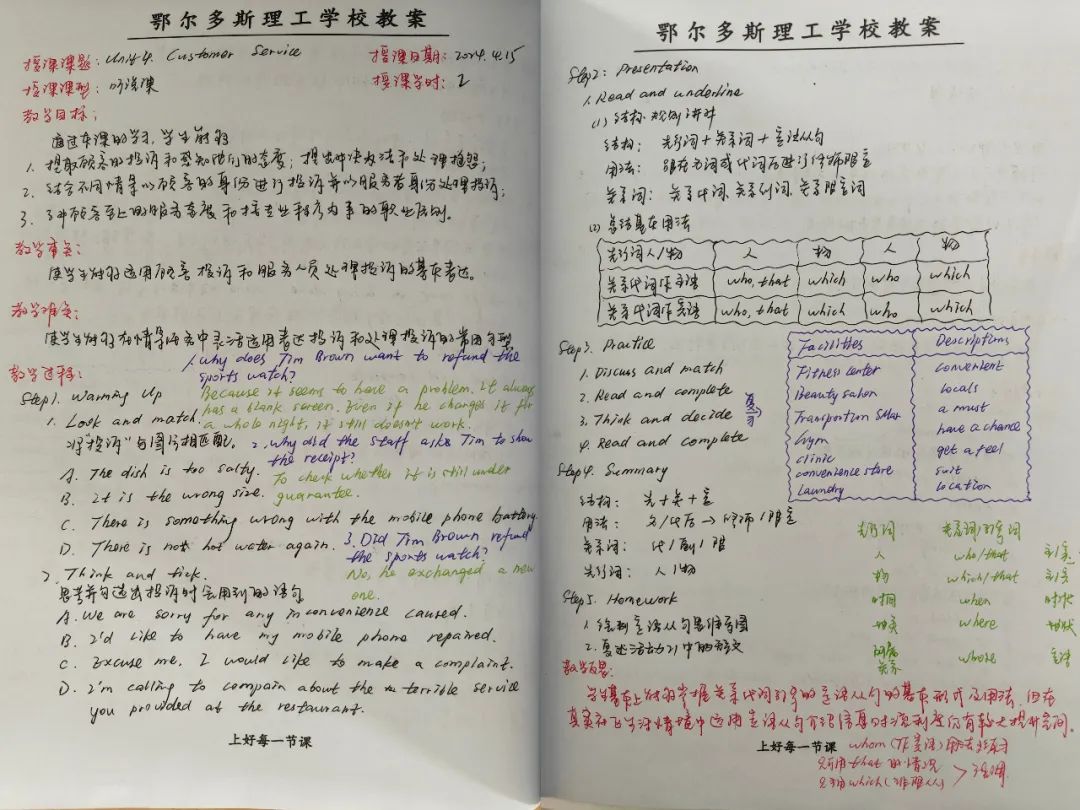 鄂尔多斯理工学校教案
授课课题: Unit 4. Customer Service 授课日期: 2024.4.15
授课课型: 听说课 授课学时: 2
教学目标:
通过本课的学习,学生能够
1. 提取顾客的投诉和感知他们的态度;提出解决办法和处理措施;
2. 结合不同情景以顾客的身份进行投诉并以服务者身份处理投诉;
3. 顾客至上的服务态度和按专业程序办事的职业原则。
教学重点:
使学生能够运用顾客投诉和服务人员处理投诉的基本表达。
教学难点:
使学生能够在情景任务中灵活运用表达投诉和处理投诉的常用句型
1. why does Tim Brown want to refund the
sports watch?
教学过程:
Because it seems to have a problem. it always
has a blank screen. Even if he changes it for
a whole night, it still doesn't work.
Step1. Warming Up
1. Look and match.
将"投诉"与图片相匹配.
2. why did the staff asks Tim to show
the receipt?
To check whether it is still under
guarantee.
A. The dish is too salty.
B. It is the wrong size.
C. There is something wrong with the mobile phone battery
D. There is not hot water again.
3. Did Tim Brown refund
the sports watch?
No, he exchanged a new
one.
2. Think and tick.
思考并勾选出投诉时会用到的语句
A. We are sorry for any inconvenience caused.
B. I'd like to have my mobile phone repaired.
C. Excuse me, I would like to make a complaint.
D. I'm calling to compain about the terrible service
you provided at the restaurant.
上好每一节课
鄂尔多斯理工学校教案
Step2: Presentation
1. Read and underline
(1) 结构·规则讲解
结构: 先行词+关系词+定语从句
用法: 跟在名词或代词后进行修饰限定
关系词: 关系代词、关系副词、关系限定词
(2) 总结基本用法
先行词人/物 人 物 人 物
关系代词作主语 who, that which who which
关系代词作宾语 who, that which who which
Step3. Practice
1. Discuss and match
2. Read and complete
3. Think and decide
4. Read and complete
复习
Facilities Descriptions
Fitness center convenient
Beauty salon locals
Transportion a must
Gym have a chance
clinic get a feel
convenience store suit
Laundry location
Step4. Summary
结构: 先+关+定
用法: 名/代后→修饰/限定
关系词: 代/副/限
先行词: 人/物
先行词 关系词
人 who/that 主/宾
物 which/that 主/宾
时间 when 时状
地点 where 地状
所属关系 whose 定语
Step5. Homework
1. 绘制定语从句思维导图
2. 复述活动21中的短文
教学反思:
学生基本上能够掌握关系代词引导的定语从句的基本形式及用法,但在
真实社会生活情境中运用定语从句介绍信息时
仍有较大提升空间。
上好每一节课
whom (作宾语) 用法
只用that的情况
只用which
强调